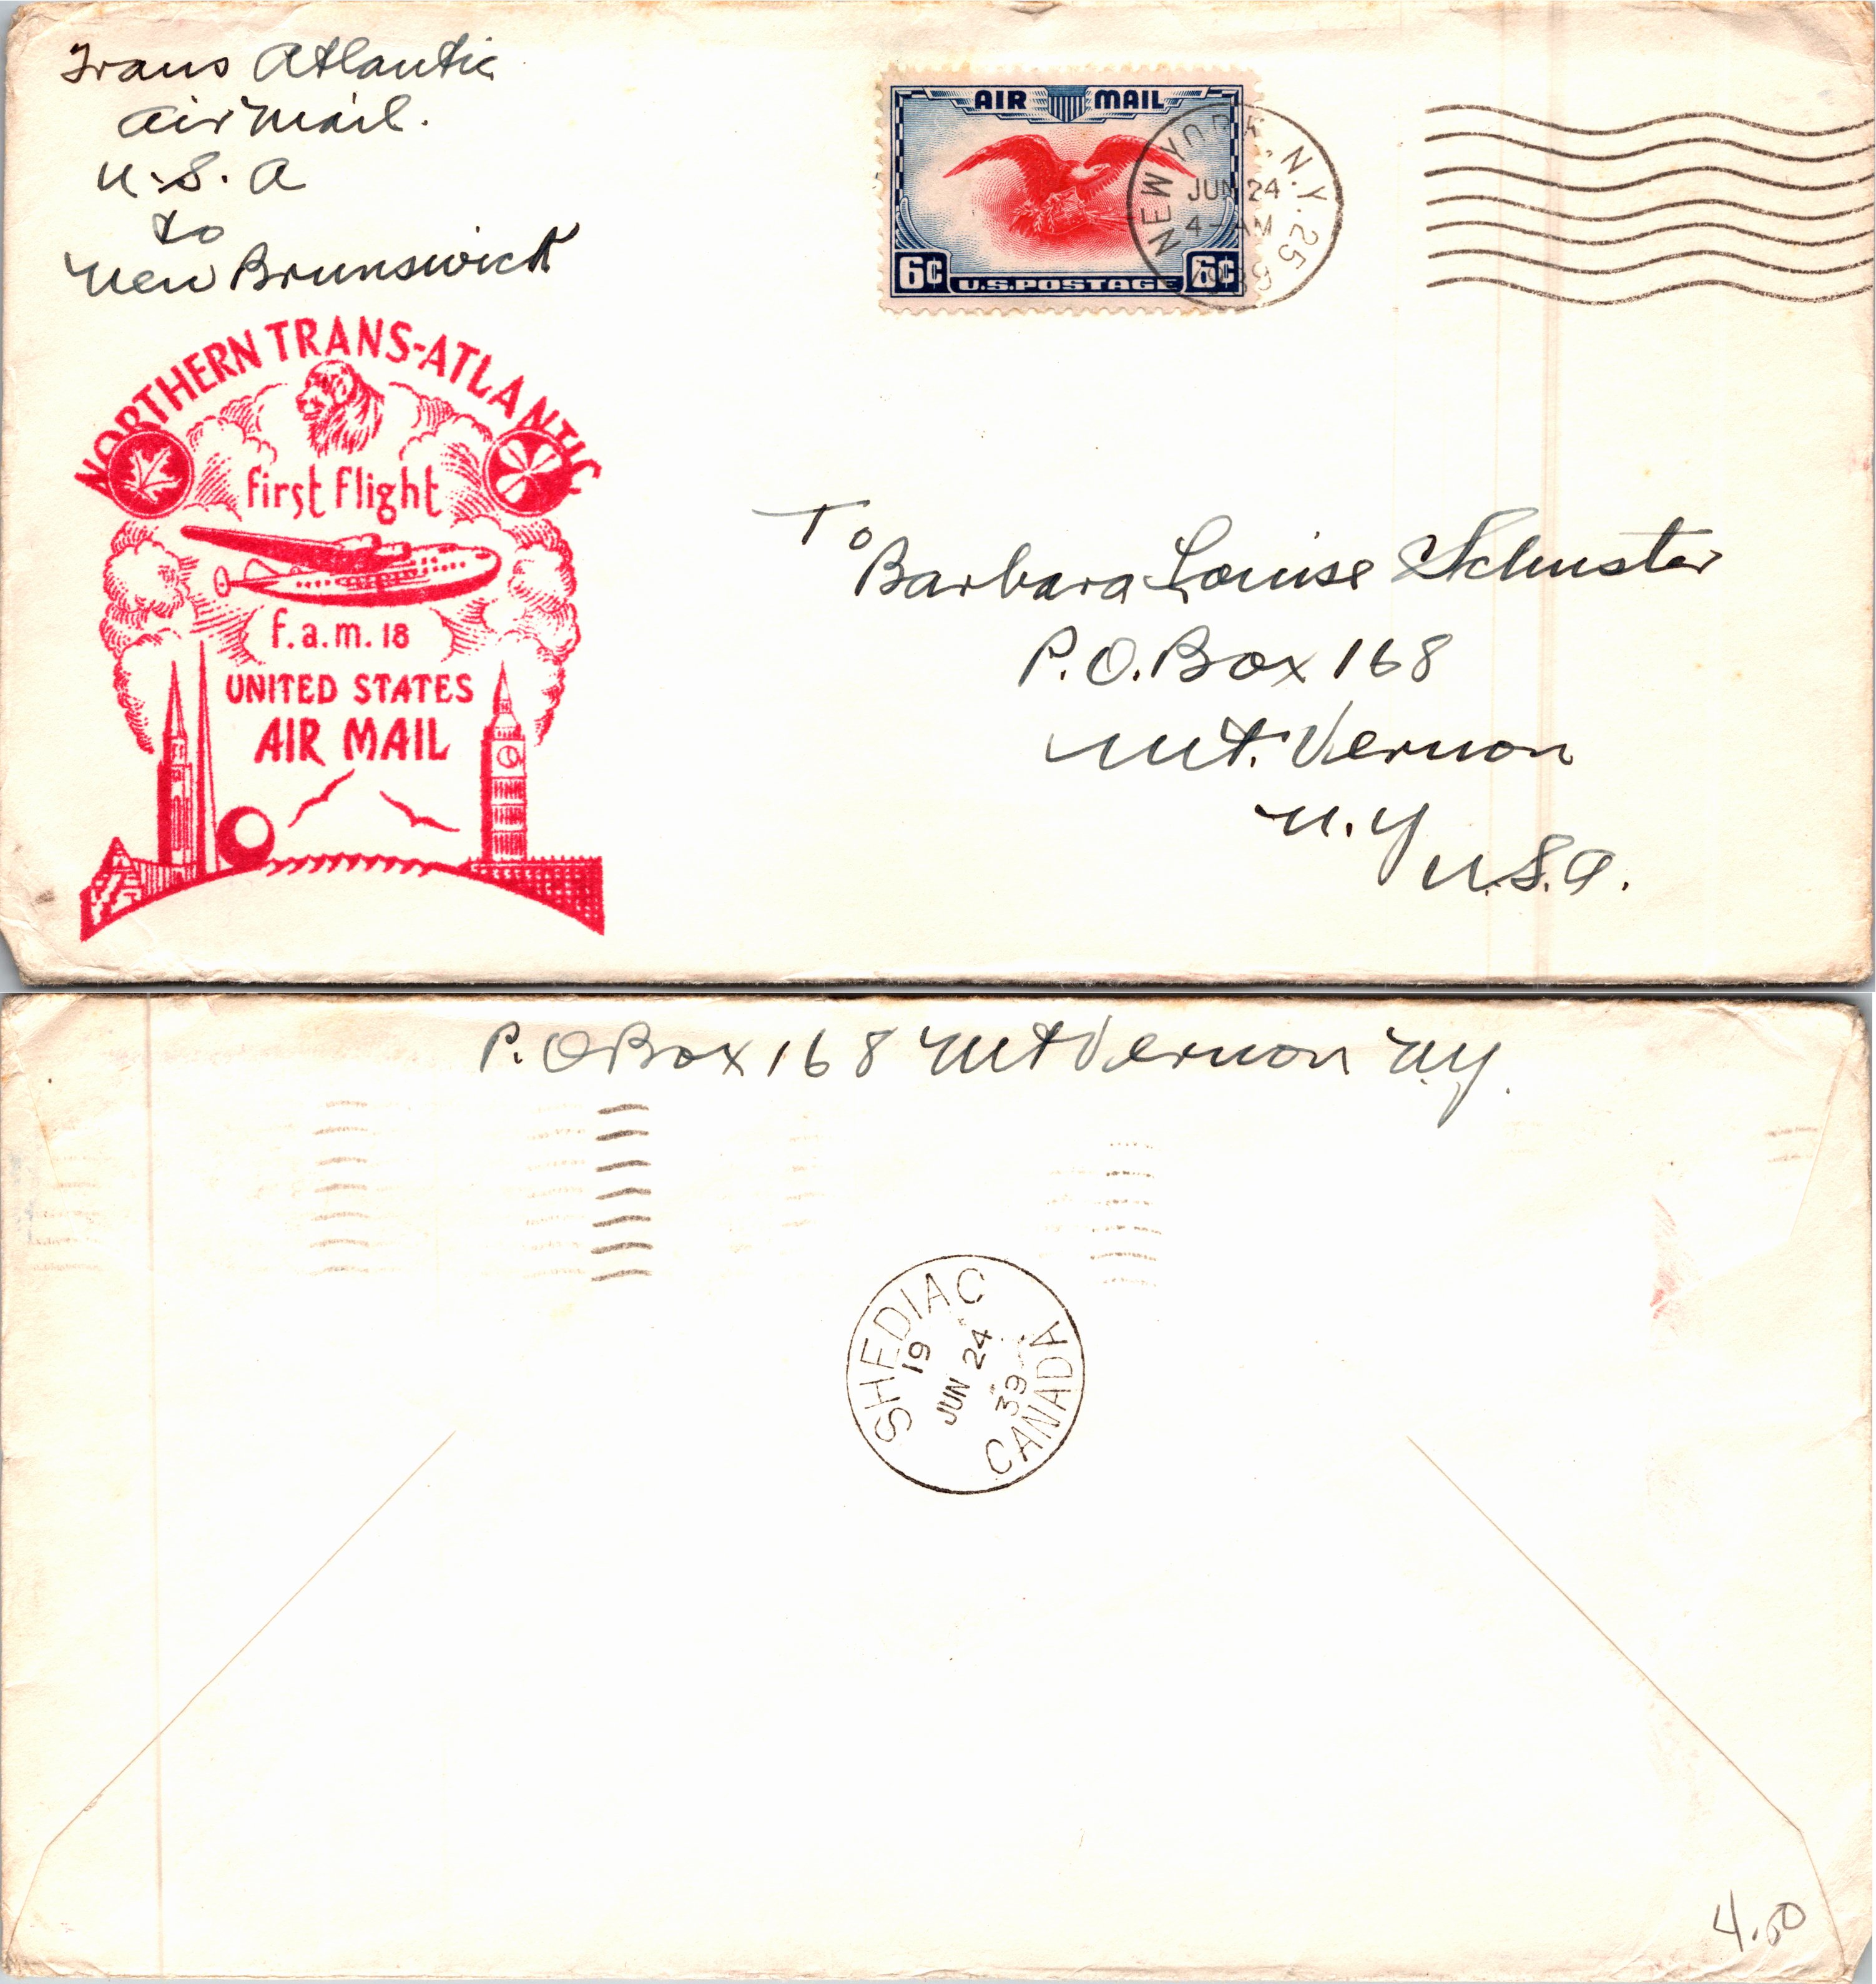 Trans Atlantic
Air Mail.
U.S.A
to
New Brunswick
AIR MAIL
6¢ U.S. POSTAGE 6¢
NEW YORK, N.Y. 25
JUN 24
4-AM
1939
NORTHERN TRANS-ATLANTIC
first flight
f.a.m. 18
UNITED STATES
AIR MAIL
To
Barbara Louise Schuster
P.O. Box 168
Mt. Vernon
N.Y
U.S.A.
P.O Box 168 Mt Vernon N.Y.
SHEDIAC
19
JUN 24
39
CANADA
4.00